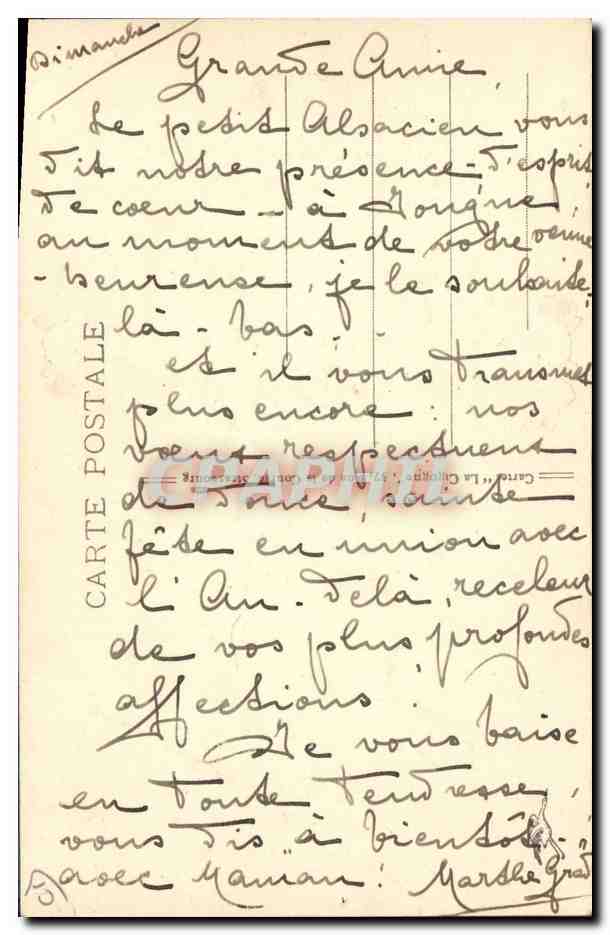 Dimanche
Grande Amie,
Le petit Alsacien vous
dit notre présence - d'esprit
de coeur - à Jougne,
au moment de votre venue
- heureuse, je le souhaite -
là-bas.
et il vous transmet
plus encore : nos
voeux respectueux
de douce, sainte
fête en union avec
l'Au-Delà, receleur
de vos plus profondes
affections !
Je vous baise
en toute tendresse,
vous dis à bientôt -
avec "Maman" !
Marthe Grad
CARTE POSTALE
Cartes "La Cigogne",
Strasbourg
CPAPHIL